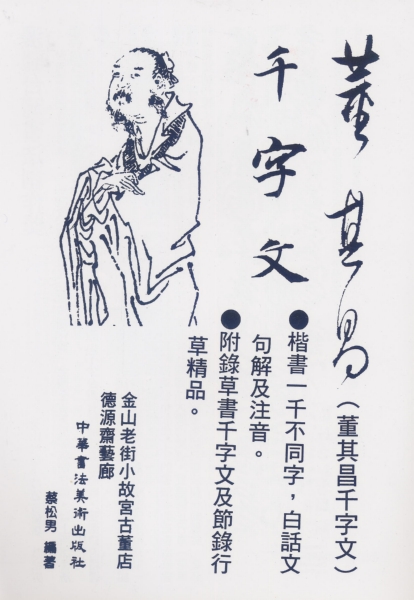 董其昌
（董其昌千字文）
千字文
●楷書一千不同字，白話文
句解及注音。
●附錄草書千字文及節錄行
草精品。
金山老街小故宮古董店
德源齋藝廊
中華書法美術出版社
蔡松男 編著